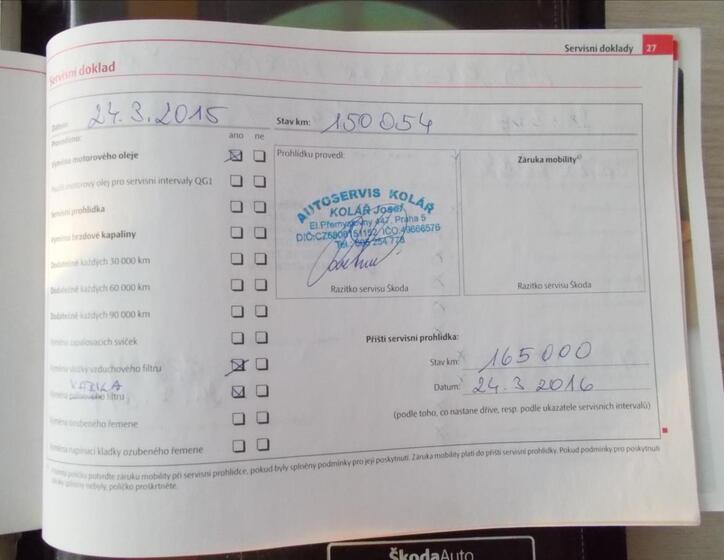 Servisní doklady 27
Servisní doklad
Datum: 24.3.2015 Stav km: 150054
Provedeno: ano ne
Výměna motorového oleje
Použit motorový olej pro servisní intervaly QG1
Servisní prohlídka
Výměna brzdové kapaliny
Dodatečné každých 30 000 km
Dodatečné každých 60 000 km
Dodatečné každých 90 000 km
Výměna zapalovacích svíček
Výměna vložky vzduchového filtru
Výměna palivového filtru
Výměna ozubeného řemene
Výměna napínací kladky ozubeného řemene
Prohlídku provedl:
AUTOSERVIS KOLÁŘ
KOLÁŘ Josef
El.Přemyslovny 447, Praha 5
Razítko servisu Škoda
Záruka mobility
Razítko servisu Škoda
Příští servisní prohlídka:
Stav km: 165000
Datum: 24.3 2016
(podle toho, co nastane dříve, resp. podle ukazatele servisních intervalů)
políčku potvrďte záruku mobility při servisní prohlídce, pokud byly splněny podmínky pro její poskytnutí. Záruka mobility platí do příští servisní prohlídky. Pokud podmínky pro poskytnutí
záruky splněny nebyly, políčko proškrtněte.
ŠkodaAuto